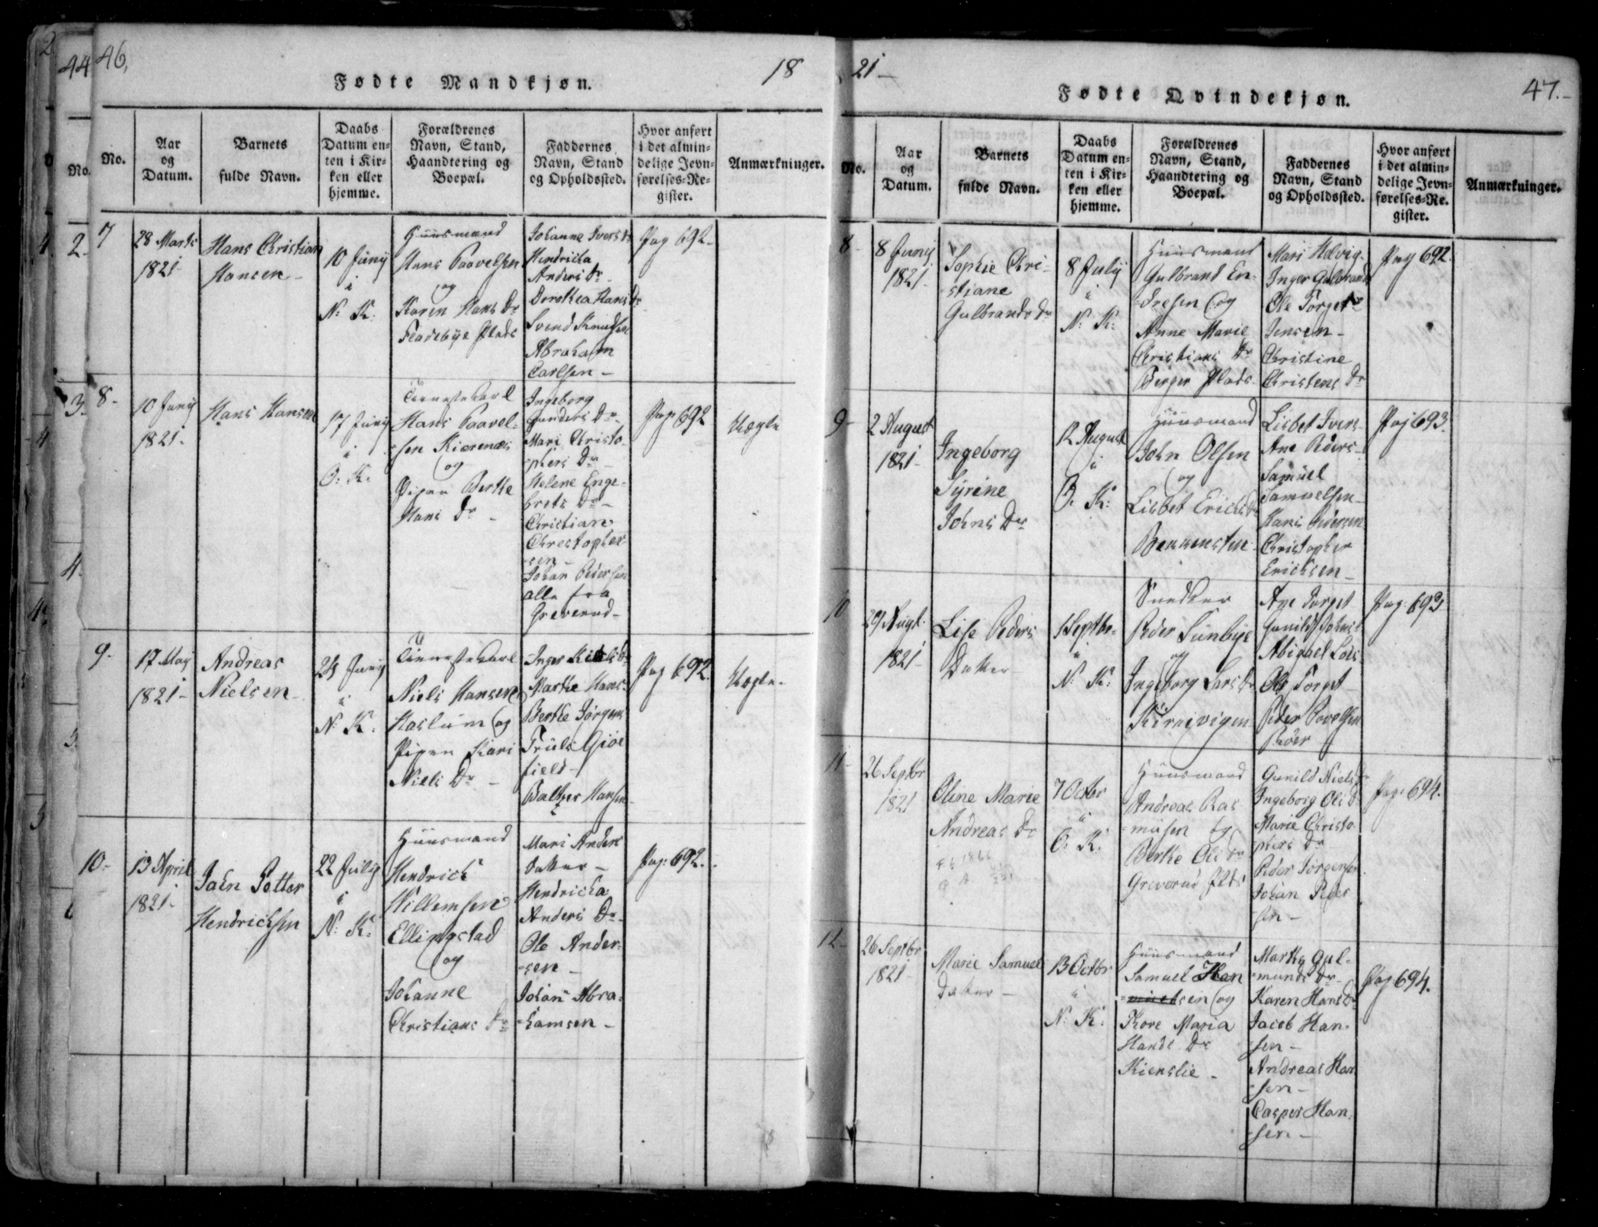 44
46.
Fødte Mandkjøn.
18
No.
No.
Aar
og
Datum.
Barnets
fulde Navn.
Daabs
Datum en-
ten i Kir-
ken eller
hjemme.
Forældrenes
Navn, Stand,
Haandtering og
Boepæl.
Faddernes
Navn, Stand
og Opholdssted.
Hvor anført
i det almin-
delige Jevn-
førelses-Re-
gister.
Anmærkninger.
7
28 Marts
1821
Hans Christian
Hansen
10 Juny
i
N: K:
Huusmand
Hans Paavelsen
og
Karen Hans Dr
Pladsbye Plads
Johanne Ivers Dr
Hendricka
Anders Dr
Dorothea Hans Dr
Svend Knudsen
Abraham
Carlsen
Pag 692
8
10 Juny
1821
Hans Hansen
17 Juny
i
O: K:
Tienestekarl
Hans Paavel-
sen Kiernæs
og
Pigen Berthe
Hans Dr
Ingeborg
Gunders Dr
Mari Christo-
phers Dr
Helene Enge-
brets Dr
Christian
Christopher-
sen
Johan Pedersen
alle fra
Greverud
Pag 692
Uægte
9
17 May
1821
Andreas
Nielsen
24 Juny
i
N: K:
Tienestekarl
Niels Hansen
Haslum og
Pigen Kari
Niels Dr
Inger Niels Dr
Marthe Hans
Berthe Jørgens
Truls Giøe
field
Baltzer Hansen
Pag 692
Uægte
10
13 April
1821
John Petter
Hendrichsen
22 July
i
N: K:
Huusmand
Hendrich
Willemsen
Ellingstad
og
Johanne
Christians Dr
Mari Anders
Datter
Hendricka
Anders Dr
Ole Ander-
sen
Johan Abra-
hamsen
Pag: 692
21
Fødte Qvindekjøn.
47.
No.
Aar
og
Datum.
Barnets
fulde Navn.
Daabs
Datum en-
ten i Kir-
ken eller
hjemme.
Forældrenes
Navn, Stand,
Haandtering og
Boepæl.
Faddernes
Navn, Stand
og Opholdssted.
Hvor anført
i det almin-
delige Jevn-
førelses-Re-
gister.
Anmærkninger.
8
8 Juny
1821
Sophie Chri-
stiane
Gulbrands Dr
8 July
i
N: K:
Huusmand
Gulbrand En-
dresen og
Anne Marie
Christians Dr
Berger Plads
Mari Helvig
Inger Gulbrands
Ole Torget
Jensen
Christine
Christens Dr
Pag 692
9
2 August
1821
Ingeborg
Syrine
Johns Dr
12 August
i
O: K:
Huusmand
John Olsen
og
Lisbet Erichs Dr
Lisbet Ivers
Ane Peders
Samuel
Samuelsen
Hans Pedersen
Christopher
Erichsen
Pag 693
10
29 Augt
1821
Lise Peders
Datter
1 Septbr
i
N: K:
Snedker
Peder Sunbye
og
Ingeborg Lars Dr
Ane Torget
Abigael Lars
Ole Torget
Peder Povelsen
Pag: 693
11
26 Septbr
1821
Oline Marie
Andreas Dr
7 Octbr
i
O: K:
Huusmand
Andreas Ras-
musen og
Berthe Ols Dr
Greverud Plds
Gunild Niels Dr
Ingeborg Ols Dr
Marie Christo-
phers Dr
Peder Jørgensen
Johan Peder-
sen
Pag: 694
12
26 Septbr
1821
Marie Samuel
Datter
13 Octbr
i
N: K:
Huusmand
Samuel Han
sen og
Thore Maria
Hans Dr
Kienslie
Marthe Gul-
munds Dr
Karen Hans Dr
Jacob Han-
sen
Andreas Han
sen
Casper Han-
sen
Pag 694.